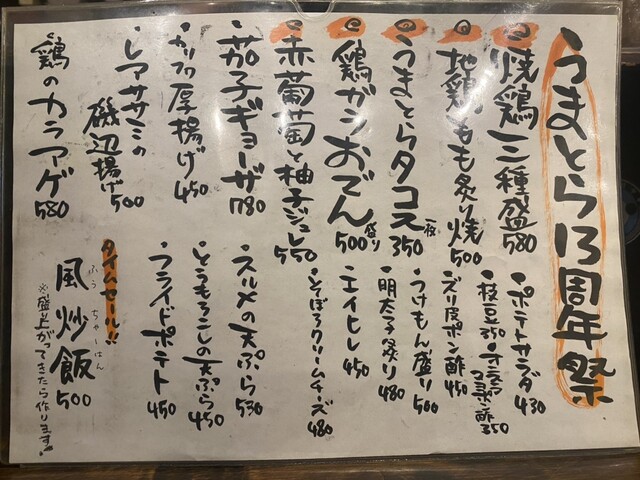 うまとら13周年祭
焼鶏三種盛 580
地鶏もも炙り焼 500
うまとらタコス 一枚 350
鶏ガラおでん 盛り 500
赤葡萄と柚子ジュレ 550
茄子ギョーザ 780
カリフワ厚揚げ 450
レアササミの
磯辺揚げ 500
鶏のカラアゲ 580
ポテトサラダ 430
枝豆 350
オニスラ
ポン酢 350
ズリ皮ポン酢 450
つけもん盛り 500
明太子炙り 480
エイヒレ 450
そぼろクリームチーズ 480
スルメの天ぷら 530
とうもろこしの天ぷら 450
フライドポテト 450
タイムセール!!
風炒飯 500
ふうちゃーはん
※盛上がってきたら作ります。